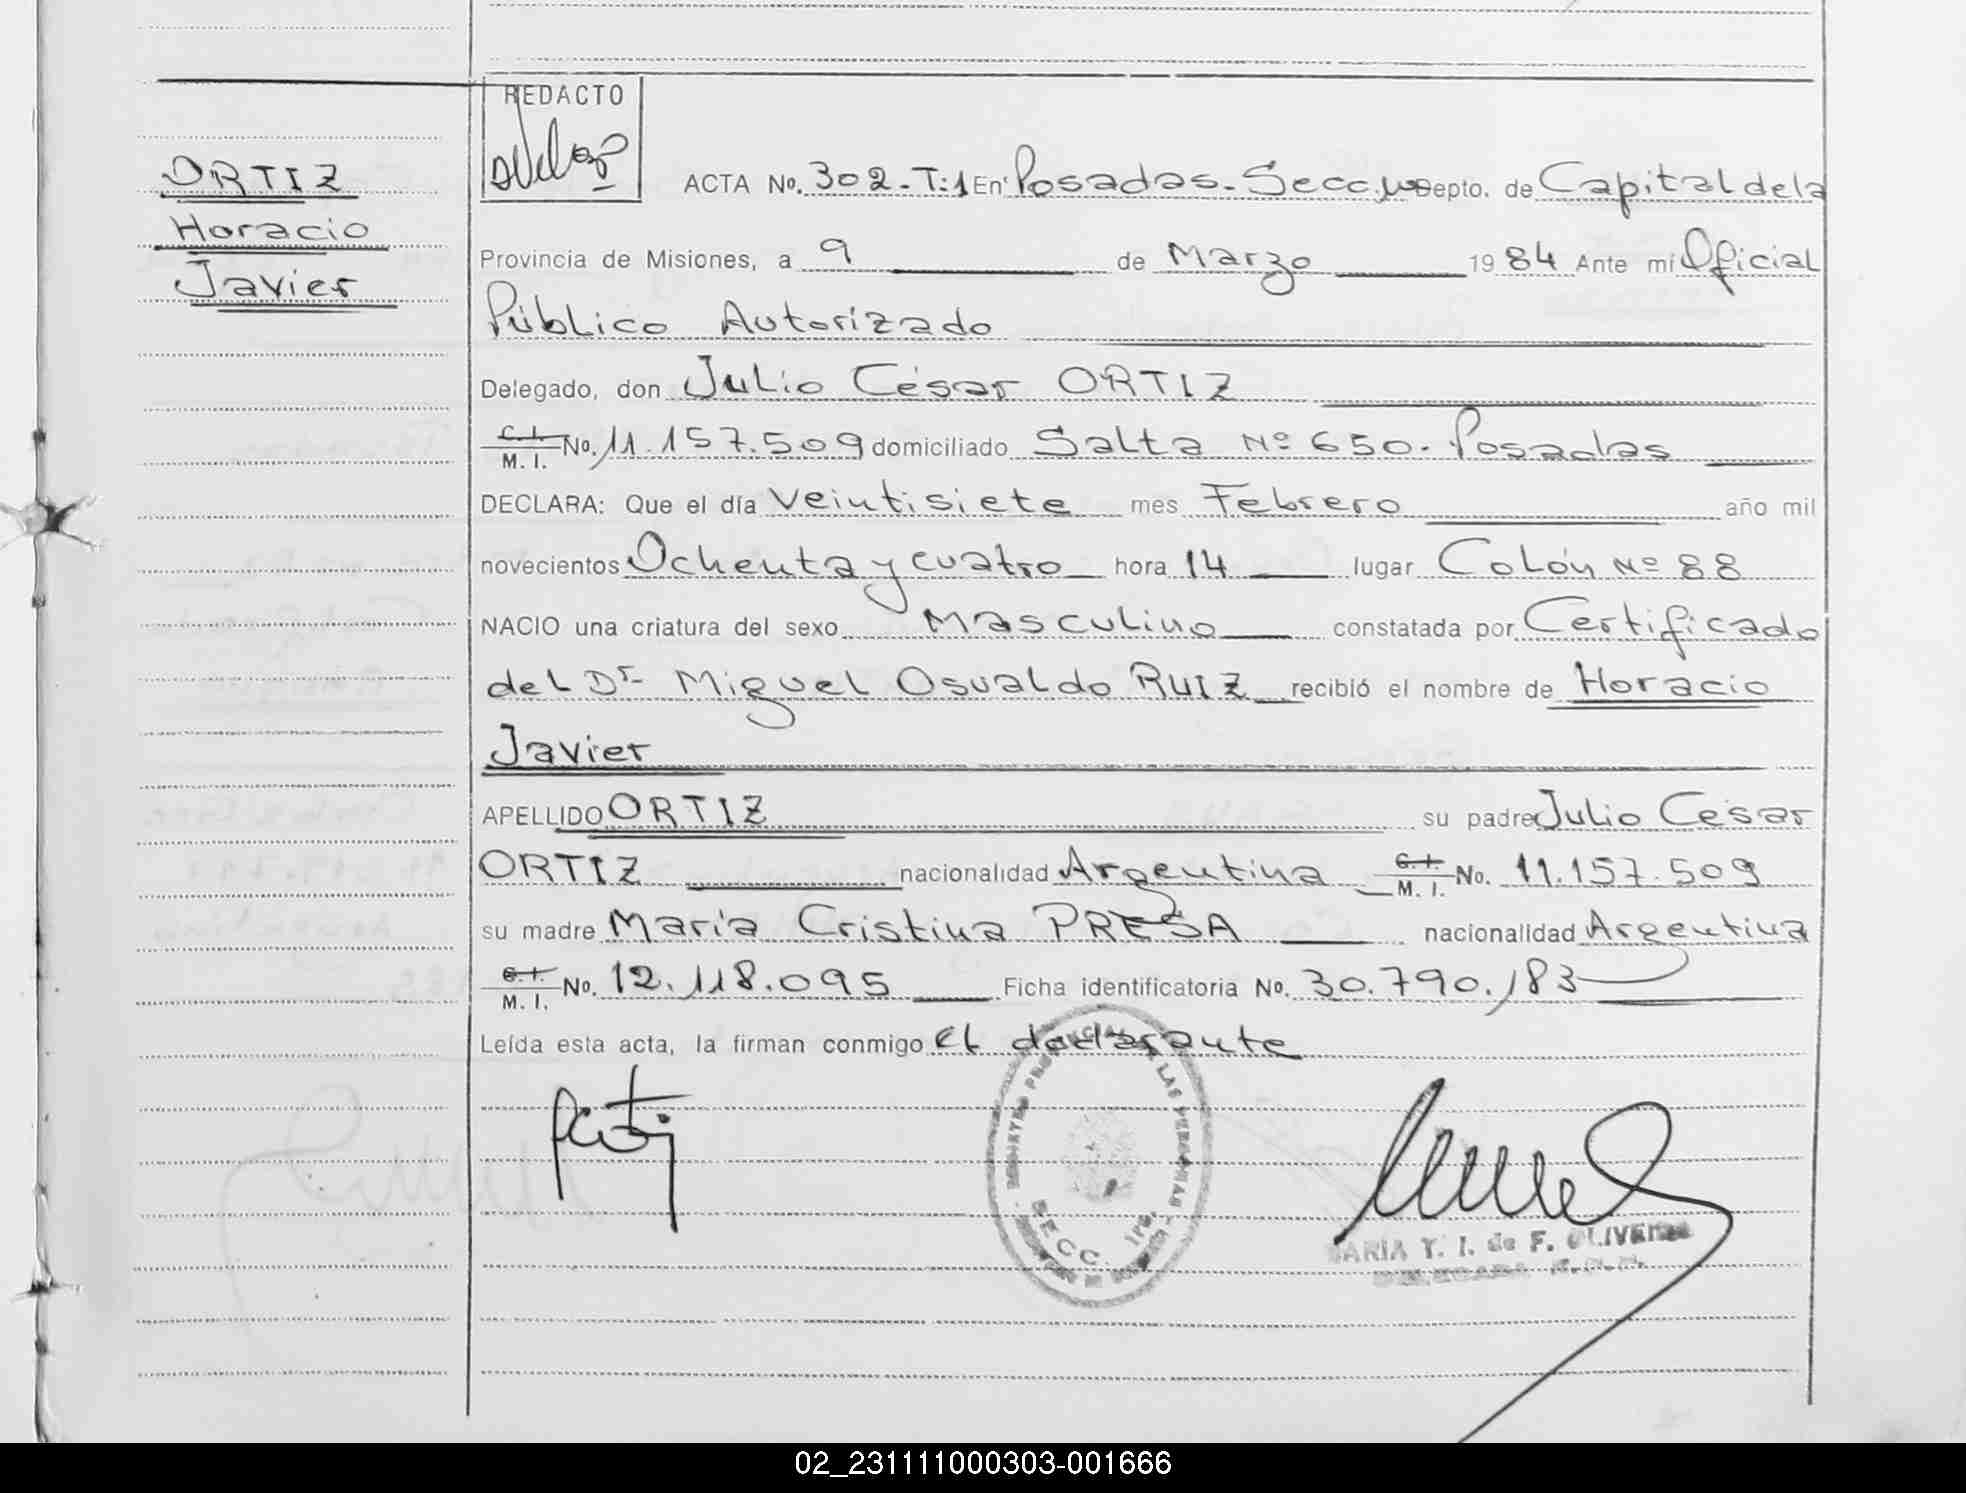 REDACTO
ORTIZ
Horacio
Javier
ACTA No. 302-T:1 En: Posadas-Secc. Depto. de Capital dela
Provincia de Misiones, a 9 de Marzo 1984 Ante mí Oficial
Público Autorizado
Delegado, don Julio César ORTIZ
C.I. M.I. No. 11.157.509 domiciliado Salta Nº 650. Posadas
DECLARA: Que el día Veintisiete mes Febrero año mil
novecientos Ochenta y cuatro hora 14 lugar Colón Nº 88
NACIO una criatura del sexo Masculino constatada por Certificado
del Dr Miguel Osvaldo RUIZ recibió el nombre de Horacio
Javier
APELLIDO ORTIZ su padre Julio César
ORTIZ nacionalidad Argentina C.I. M.I. No. 11.157.509
su madre María Cristina PRESA nacionalidad Argentina
C.I. M.I. No. 12.118.095 Ficha identificatoria No. 30.790.183
Leída esta acta, la firman conmigo el declarante
LAS PERSONAS
SECC.
MARIA Y. I. de F. OLIVEIRA
DELEGADA
02_231111000303-001666